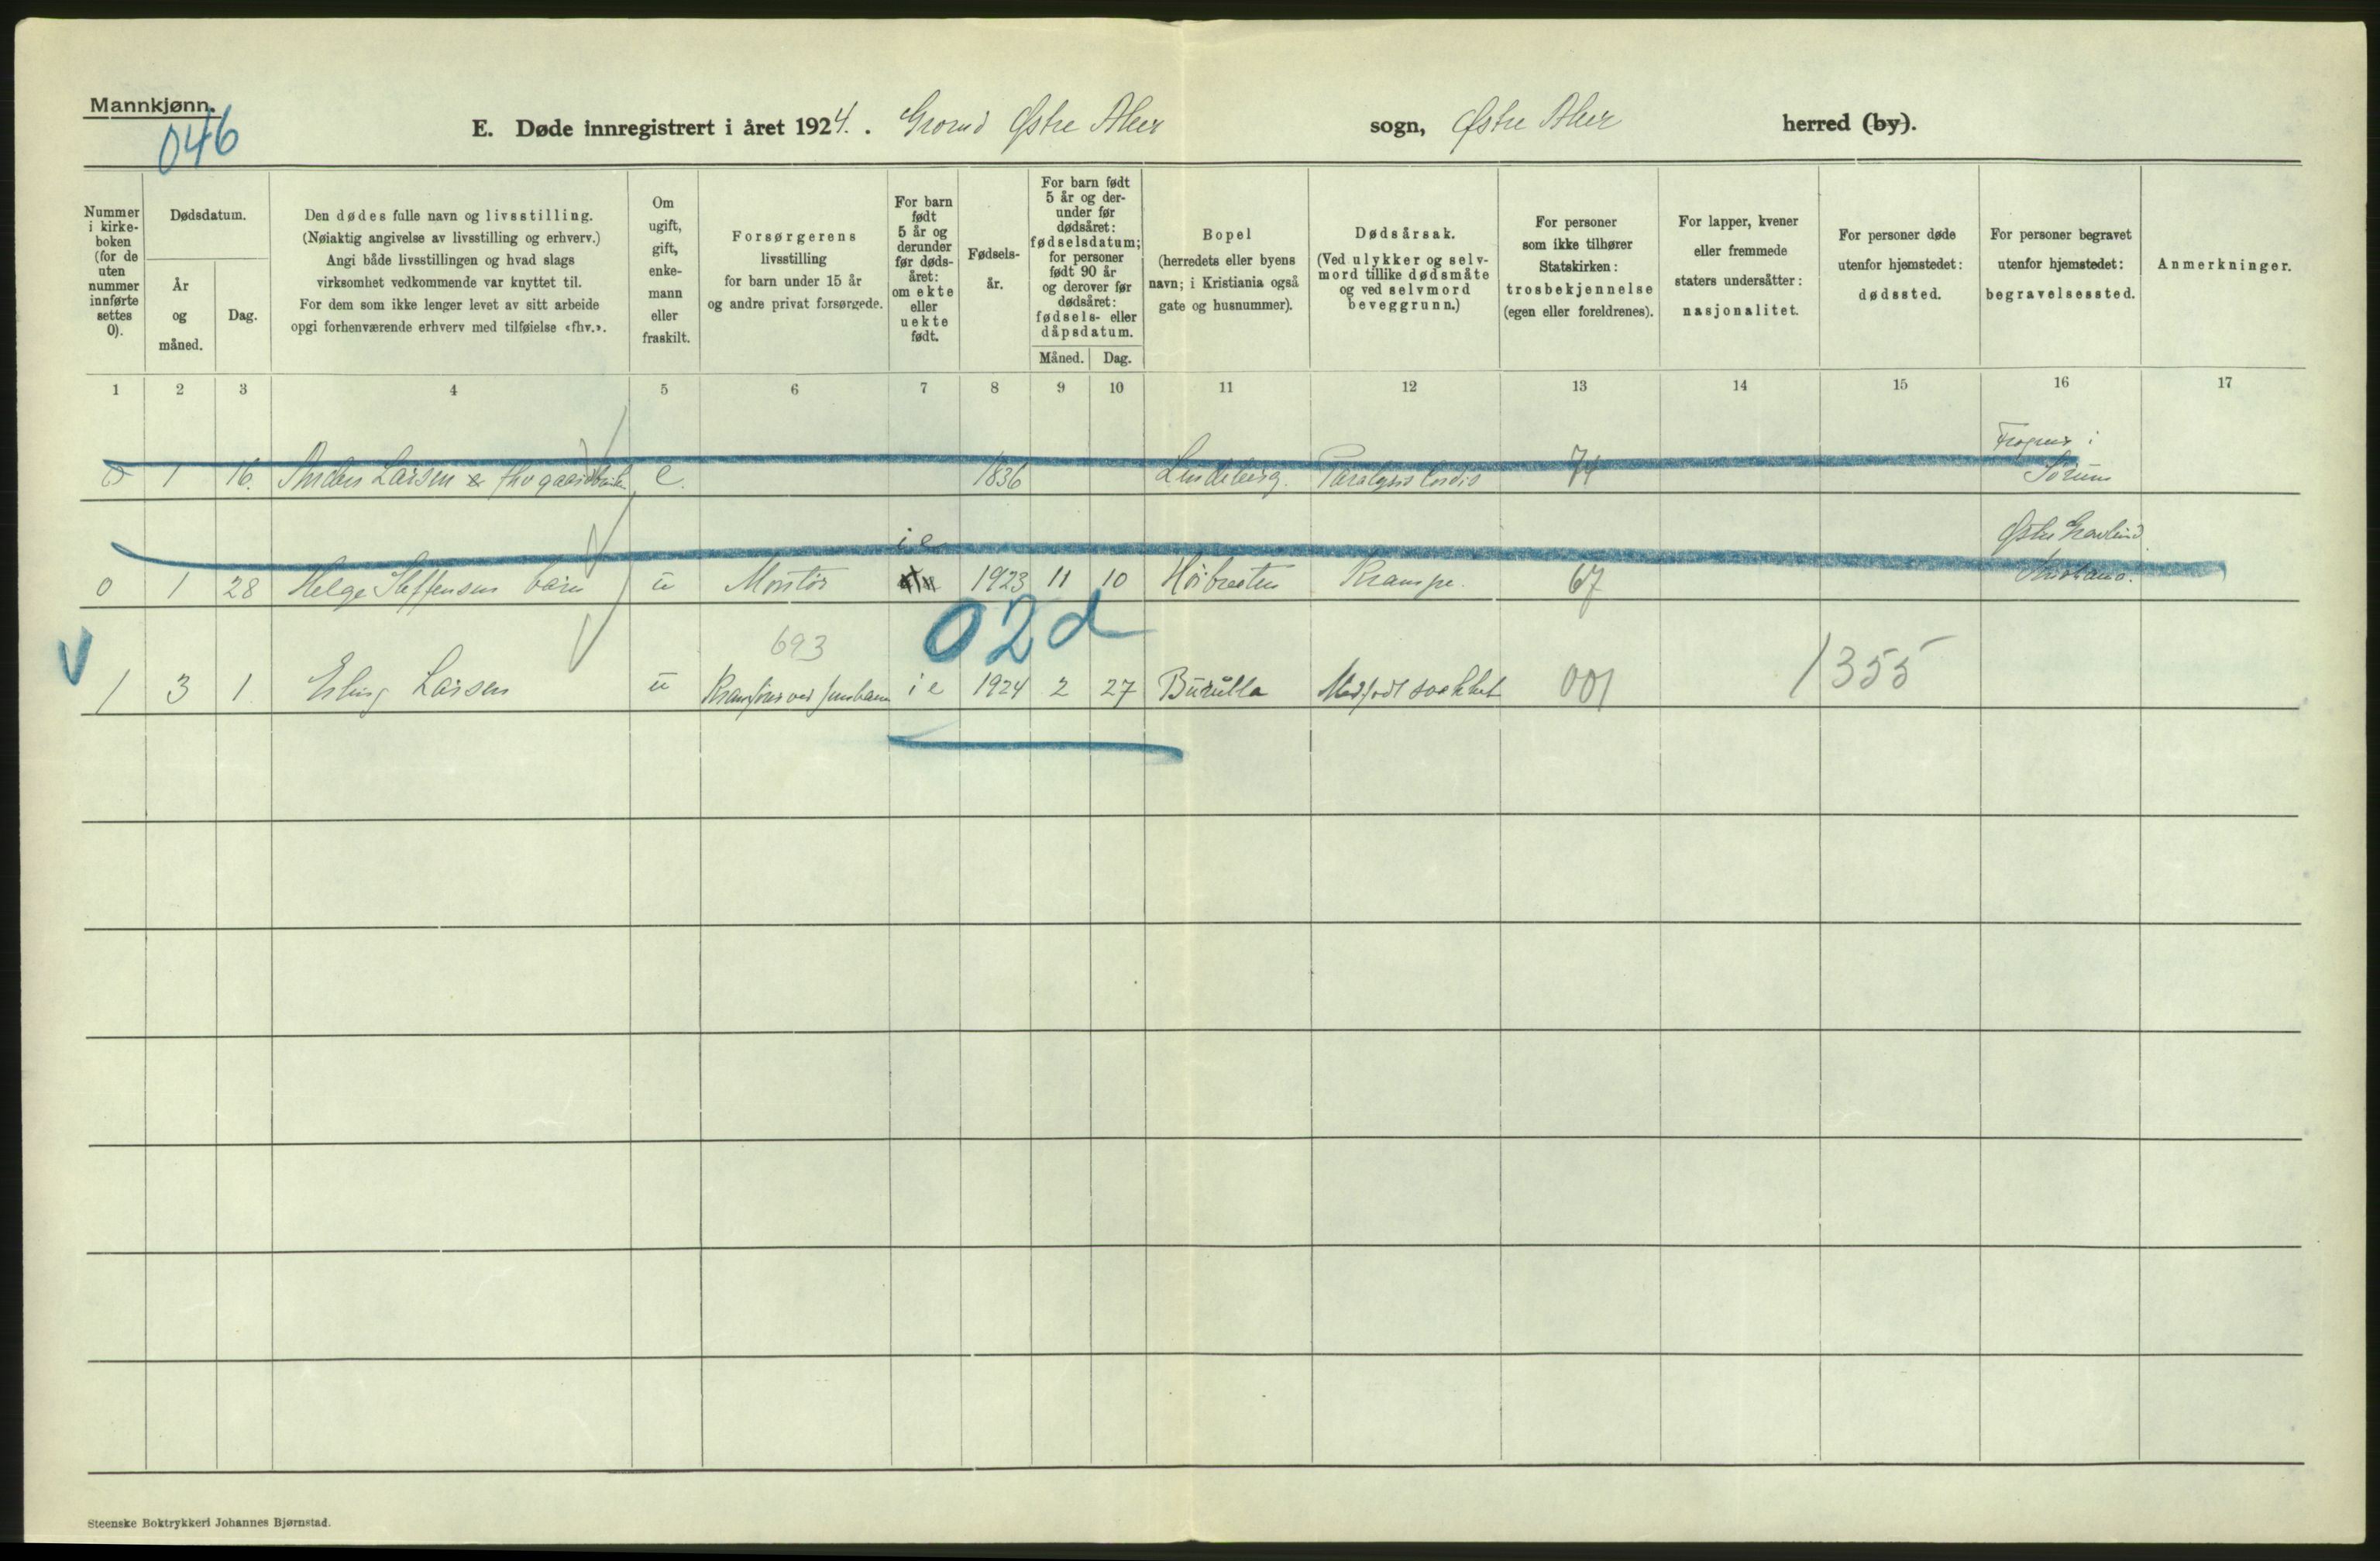 Mannkjønn.
046
E. Døde innregistrert i året 1924. . Grorud Østre Aker sogn, Østre Aker herred (by).
Nummer i kirke-boken (for de uten nummer innførte settes 0).
Dødsdatum.
År og måned.
Dag.
Den dødes fulle navn og livsstilling.
(Nøiaktig angivelse av livsstilling og erhverv.)
Angi både livsstillingen og hvad slags
virksomhet vedkommende var knyttet til.
For dem som ikke lenger levet av sitt arbeide
opgi forhenværende erhverv med tilføielse «fhv.».
Om ugift, gift, enke-mann eller fraskilt.
Forsørgerens
livsstilling
for barn under 15 år
og andre privat forsørgede.
For barn født 5 år og derunder før døds-året: om ekte eller uekte født.
Fødsels-år.
For barn født 5 år og der-under før dødsåret: fødselsdatum; for personer født 90 år og derover før dødsåret: fødsels- eller dåpsdatum.
Måned. Dag.
Bopel
(herredets eller byens
navn; i Kristiania også
gate og husnummer).
Dødsårsak.
(Ved ulykker og selv-
mord tillike dødsmåte
og ved selvmord
beveggrunn.)
For personer
som ikke tilhører
Statskirken:
trosbekjennelse
(egen eller foreldrenes).
For lapper, kvener
eller fremmede
staters undersåtter:
nasjonalitet.
For personer døde
utenfor hjemstedet:
dødssted.
For personer begravet
utenfor hjemstedet:
begravelsessted.
Anmerkninger.
1 2 3 4 5 6 7 8 9 10 11 12 13 14 15 16 17
Frogner i
0 1 16. Anders Larsen fhv gaardbruker e. 1836 Lindeberg. Paralysis Cordis 74 Sørum
i e Østre Gravlund
0 1 28 Helge Steffensen barn u Montør 1923 11 10 Høibraaten Krampe. 67 Kristiania.
V 693 02d
1 3 1 Erling Larsen u ved i e 1924 2 27 Medfødt svakhet 001 1355
Steenske Boktrykkeri Johannes Bjørnstad.